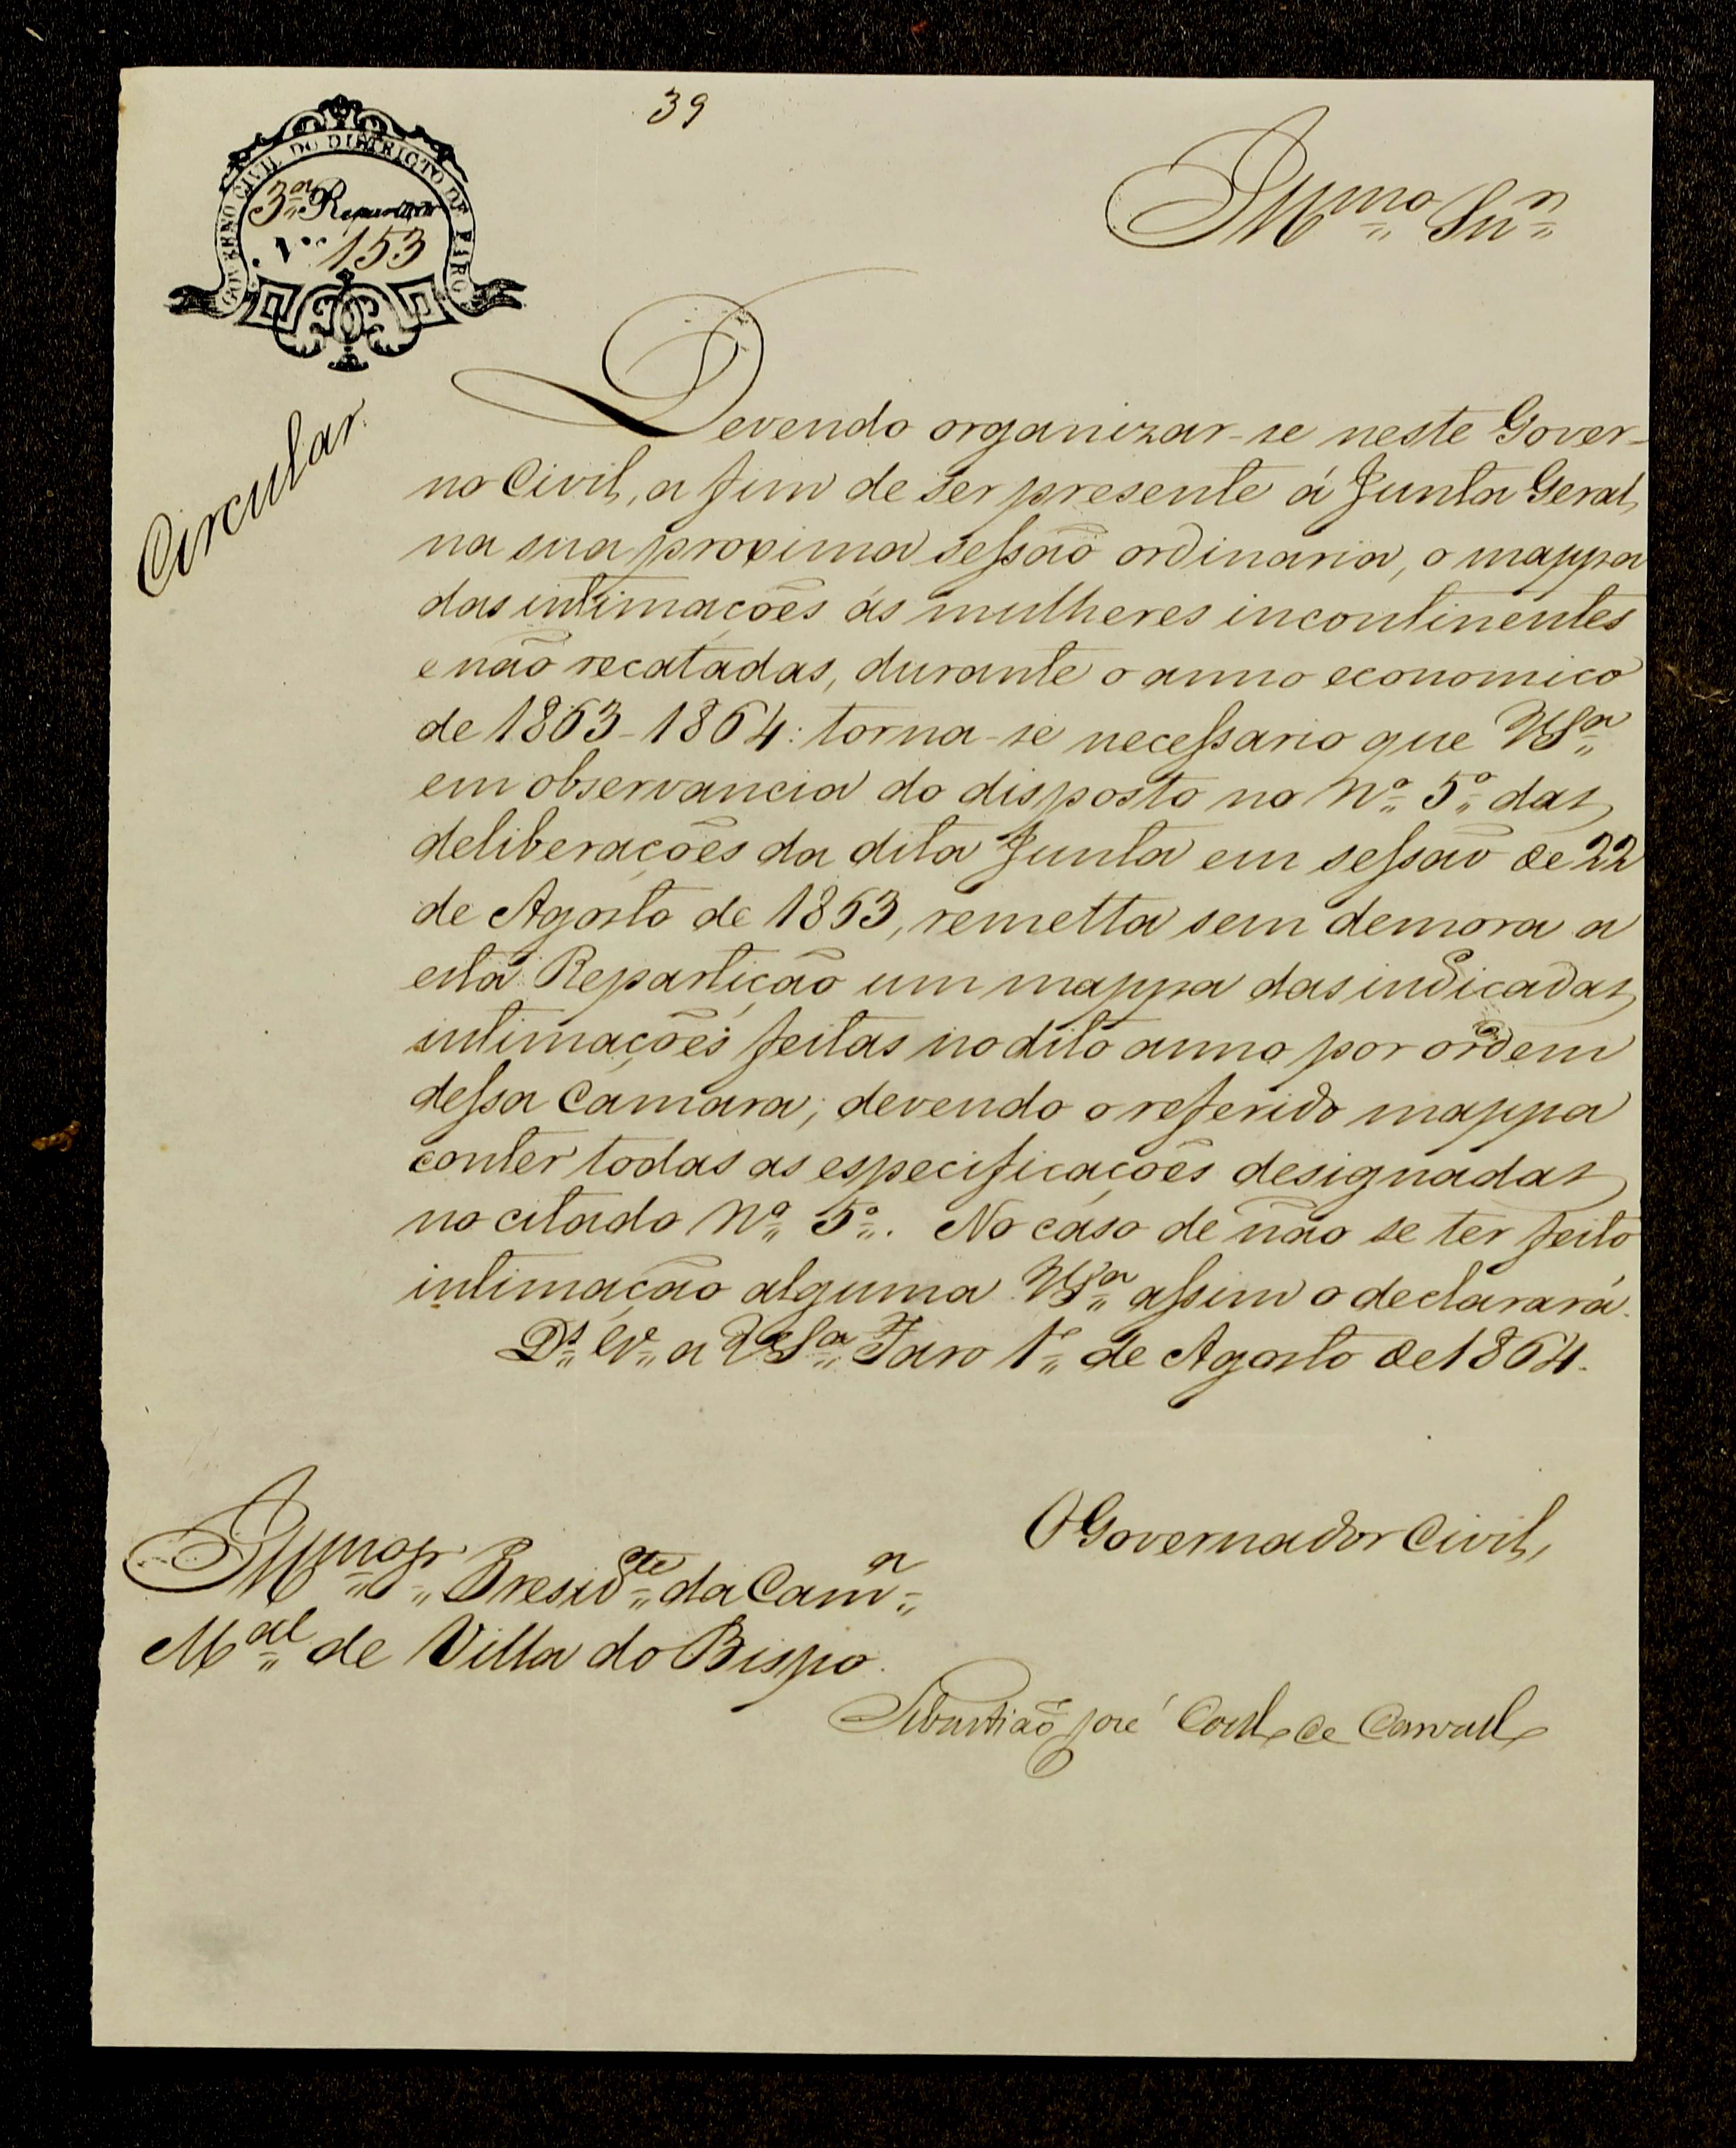 39
GOVERNO CIVIL DO DISTRICTO DE FARO
3ª Repartição
Nº 153
Illmo Snr
Circular
Devendo organizar-se neste Gover-
no Civil, a fim de ser presente á Junta Geral,
na sua proxima sessão ordinaria, o mappa
das intimações ás mulheres incontinentes
e não recatadas, durante o anno economico
de 1863-1864: torna-se necessario que VSª
em observancia do disposto no Nº 5º das
deliberações da dita Junta em sessão de 22
de Agosto de 1853, remetta sem demora a
esta Repartição um mappa das indicadas
intimações feitas no dito anno por ordem
dessa Camara; devendo o referido mappa
conter todas as especificações designadas
no citado Nº 5º. No cáso de não se ter feito
intimação alguma VSª assim o declarará.
Ds Ge a VSª Faro 1º de Agosto de 1864.
O Governador Civil,
Illmo Sr Presidte da Camª
Mal de Villa do Bispo.
Sebastião José Coelho de Carvalho